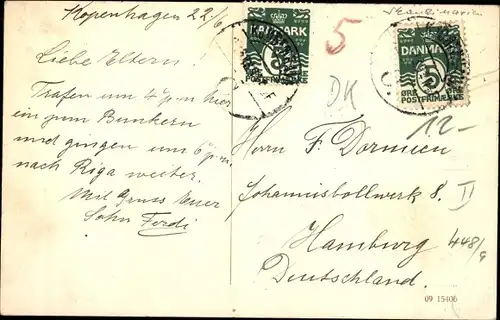 Kopenhagen 22/6
Liebe Eltern!
Trafen um 4 p.m. hier
ein zum Bunkern
und gingen um 6 p.m.
nach Riga weiter.
Mit Gruss Euer
Sohn Ferdi
DANMARK
5
ØRE
DANMARK
5
ØRE ØRE
POSTFRIM
5
DK
12-
Herrn F. Dormien
Johannisbollwerk 8. II
Hamburg
448/9
Deutschland.
09 15406